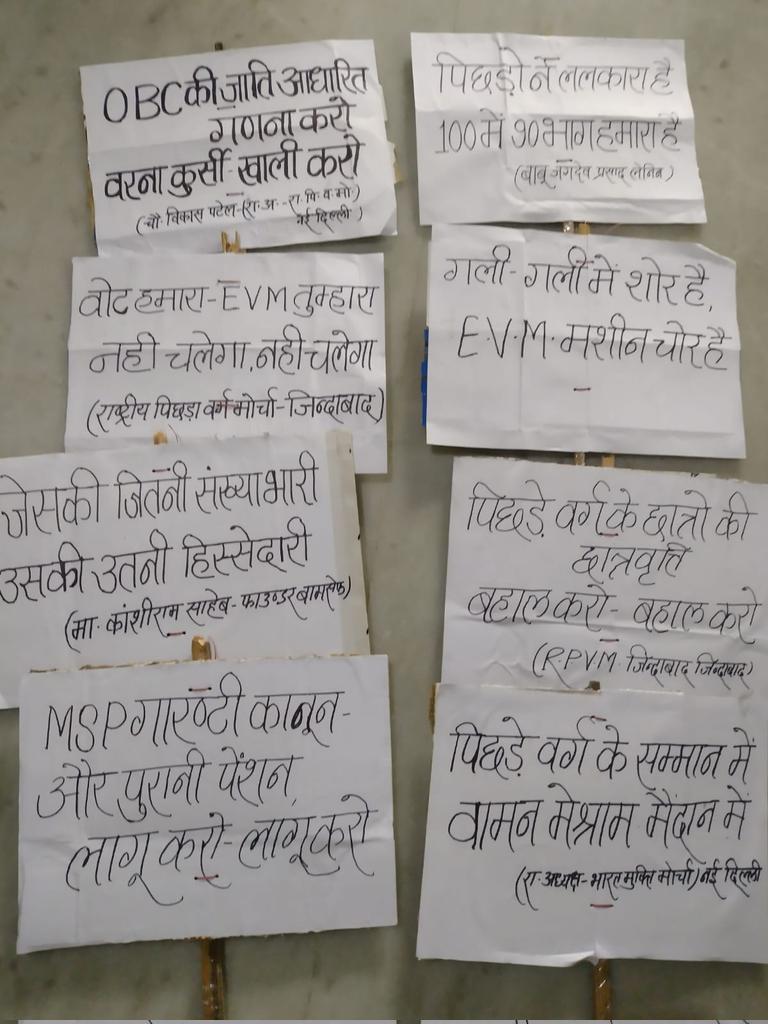 OBC की जाति आधारित
गणना करो
वरना कुर्सी खाली करो
(चौ. विकास पटेल-(रा. अ.-रा. पि. व. मो.)
नई दिल्ली)
पिछड़ो ने ललकारा है
100 में 90 भाग हमारा है
(बाबू जगदेव प्रसाद लेनिन)
वोट हमारा-EVM तुम्हारा
नही चलेगा, नही चलेगा
(राष्ट्रीय पिछड़ा वर्ग मोर्चा-जिन्दाबाद)
गली-गली में शोर है,
E.V.M. मशीन चोर है
जिसकी जितनी संख्या भारी
उसकी उतनी हिस्सेदारी
(मा. कांशीराम साहेब-फाउण्डर बामसेफ)
पिछड़े वर्ग के छात्रो की
छात्रवृत्ति
बहाल करो-बहाल करो
(R.P.V.M. जिन्दाबाद जिन्दाबाद)
MSP गारण्टी कानून-
और पुरानी पेंशन,
लागू करो-लागू करो
पिछड़े वर्ग के सम्मान में
वामन मेश्राम मैदान में
(रा. अध्यक्ष-भारत मुक्ति मोर्चा) नई दिल्ली